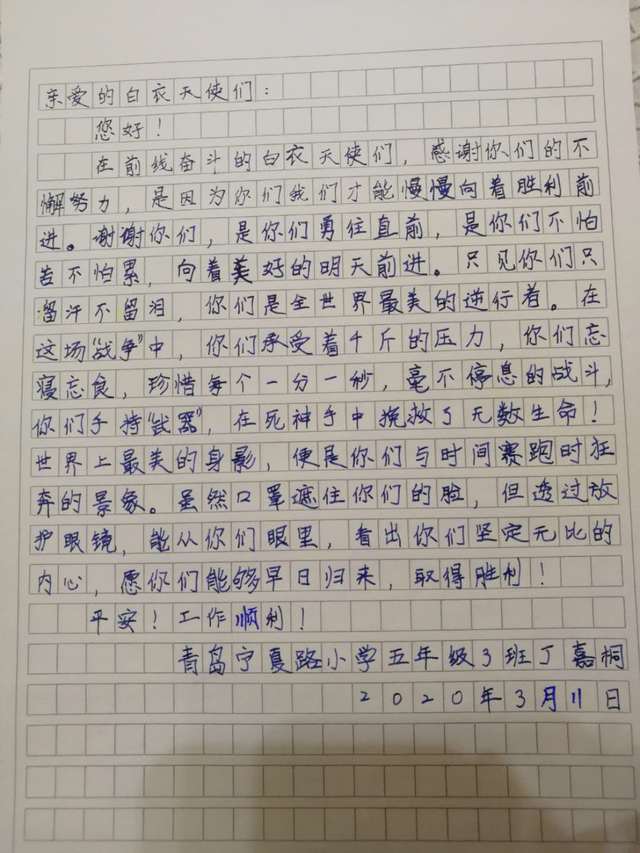 亲爱的白衣天使们：
您好！
在前线奋斗的白衣天使们，感谢你们的不
懈努力，是因为你们我们才能慢慢向着胜利前
进。谢谢你们，是你们勇往直前，是你们不怕
苦不怕累，向着美好的明天前进。只见你们只
留汗不留泪，你们是全世界最美的逆行者。在
这场“战争”中，你们承受着千斤的压力，你们忘
寝忘食，珍惜每个一分一秒，毫不停息的战斗，
你们手持“武器”，在死神手中挽救了无数生命！
世界上最美的身影，便是你们与时间赛跑时狂
奔的景象。虽然口罩遮住你们的脸，但透过放
护眼镜，能从你们眼里，看出你们坚定无比的
内心，愿你们能够早日归来，取得胜利！
平安！工作顺利！
青岛宁夏路小学五年级3班丁嘉桐
2020年3月11日